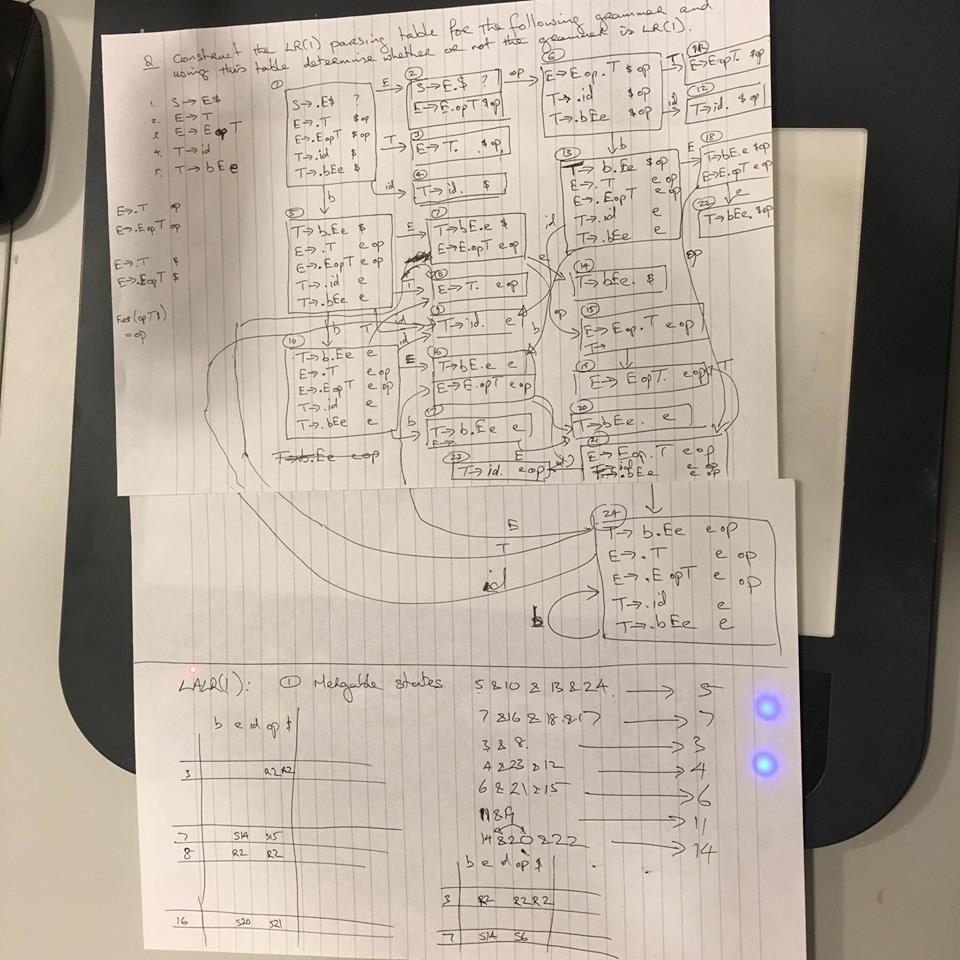 Q Construct the LR(1) parsing table for the following grammar and
using this table determine whether or not the grammar is LR(1).
1. S→E$
2. E→T
3. E→E op T
4. T→id
5. T→bEe
E→.T op
E→.EopT op
E→.T $
E→.EopT $
First(opT$)
=op
1
S→.E$ ?
E→.T $op
E→.EopT $op
T→.id $
T→.bEe $
E
2
S→E.$ ?
E→E.opT $op
op
6
E→Eop.T $op
T→.id $op
T→.bEe $op
T
11
E→EopT. $op
id
12
T→id. $op
T
3
E→T. $op
id
4
T→id. $
b
b
5
T→b.Ee $
E→.T e op
E→.EopT e op
T→.id e
T→.bEe e
E
7
T→bE.e $
E→E.opT e op
13
T→b.Ee $op
E→.T e op
E→.EopT e op
T→.id e
T→.bEe e
E
18
T→bE.e $op
E→E.opT e op
e
22
T→bEe. $op
op
T
8
E→T. e op
id
9
T→id. e
e
14
T→bEe. $
op
15
E→Eop.T e op
T→
b
T
id
id
b
10
T→b.Ee e
E→.T e op
E→.EopT e op
T→.id e
T→.bEe e
E
16
T→bE.e e
E→E.opT e op
19
E→EopT. e op
T
b
17
T→b.Ee e
E→
20
T→bEe. e
E
21
E→Eop.T e op
T→.id e op
T→.bEe e op
23
T→id. e op
T→b.Ee e op
24
T→b.Ee e op
E→.T e op
E→.EopT e op
T→.id e
T→.bEe e
E
T
id
b
LALR(1): 1 Mergable states 5 & 10 & 13 & 24. → 5
7 & 16 & 18 & 17 → 7
3 & 8. → 3
4 & 23 & 12 → 4
6 & 21 & 15 → 6
11 & 19 → 11
14 & 20 & 22 → 14
b e id op $
3 R2 R2
7 S14 S15
8 R2 R2
16 S20 S21
b e id op $
3 R2 R2 R2
7 S14 S6